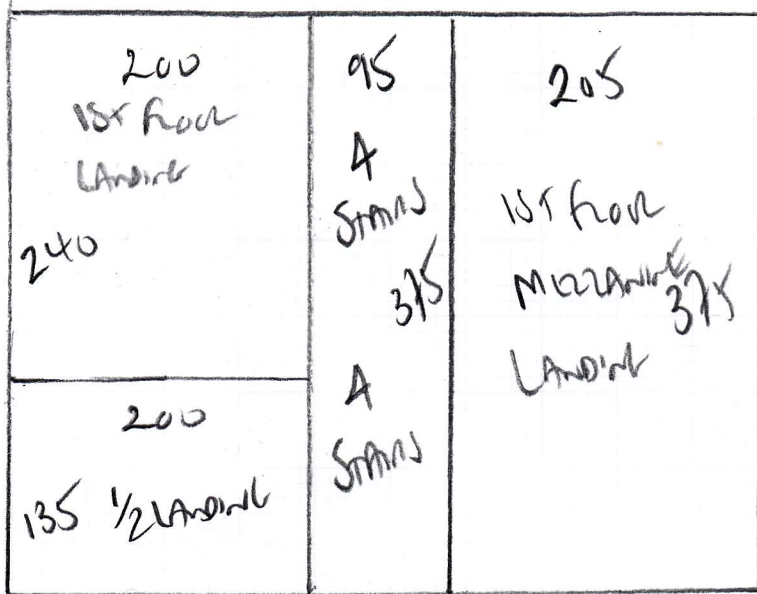 200
1ST FLOOR
LANDING
240
200
135 1/2 LANDING
95
4
STAIRS
375
4
STAIRS
205
1ST FLOOR
MEZZANINE
375
LANDING